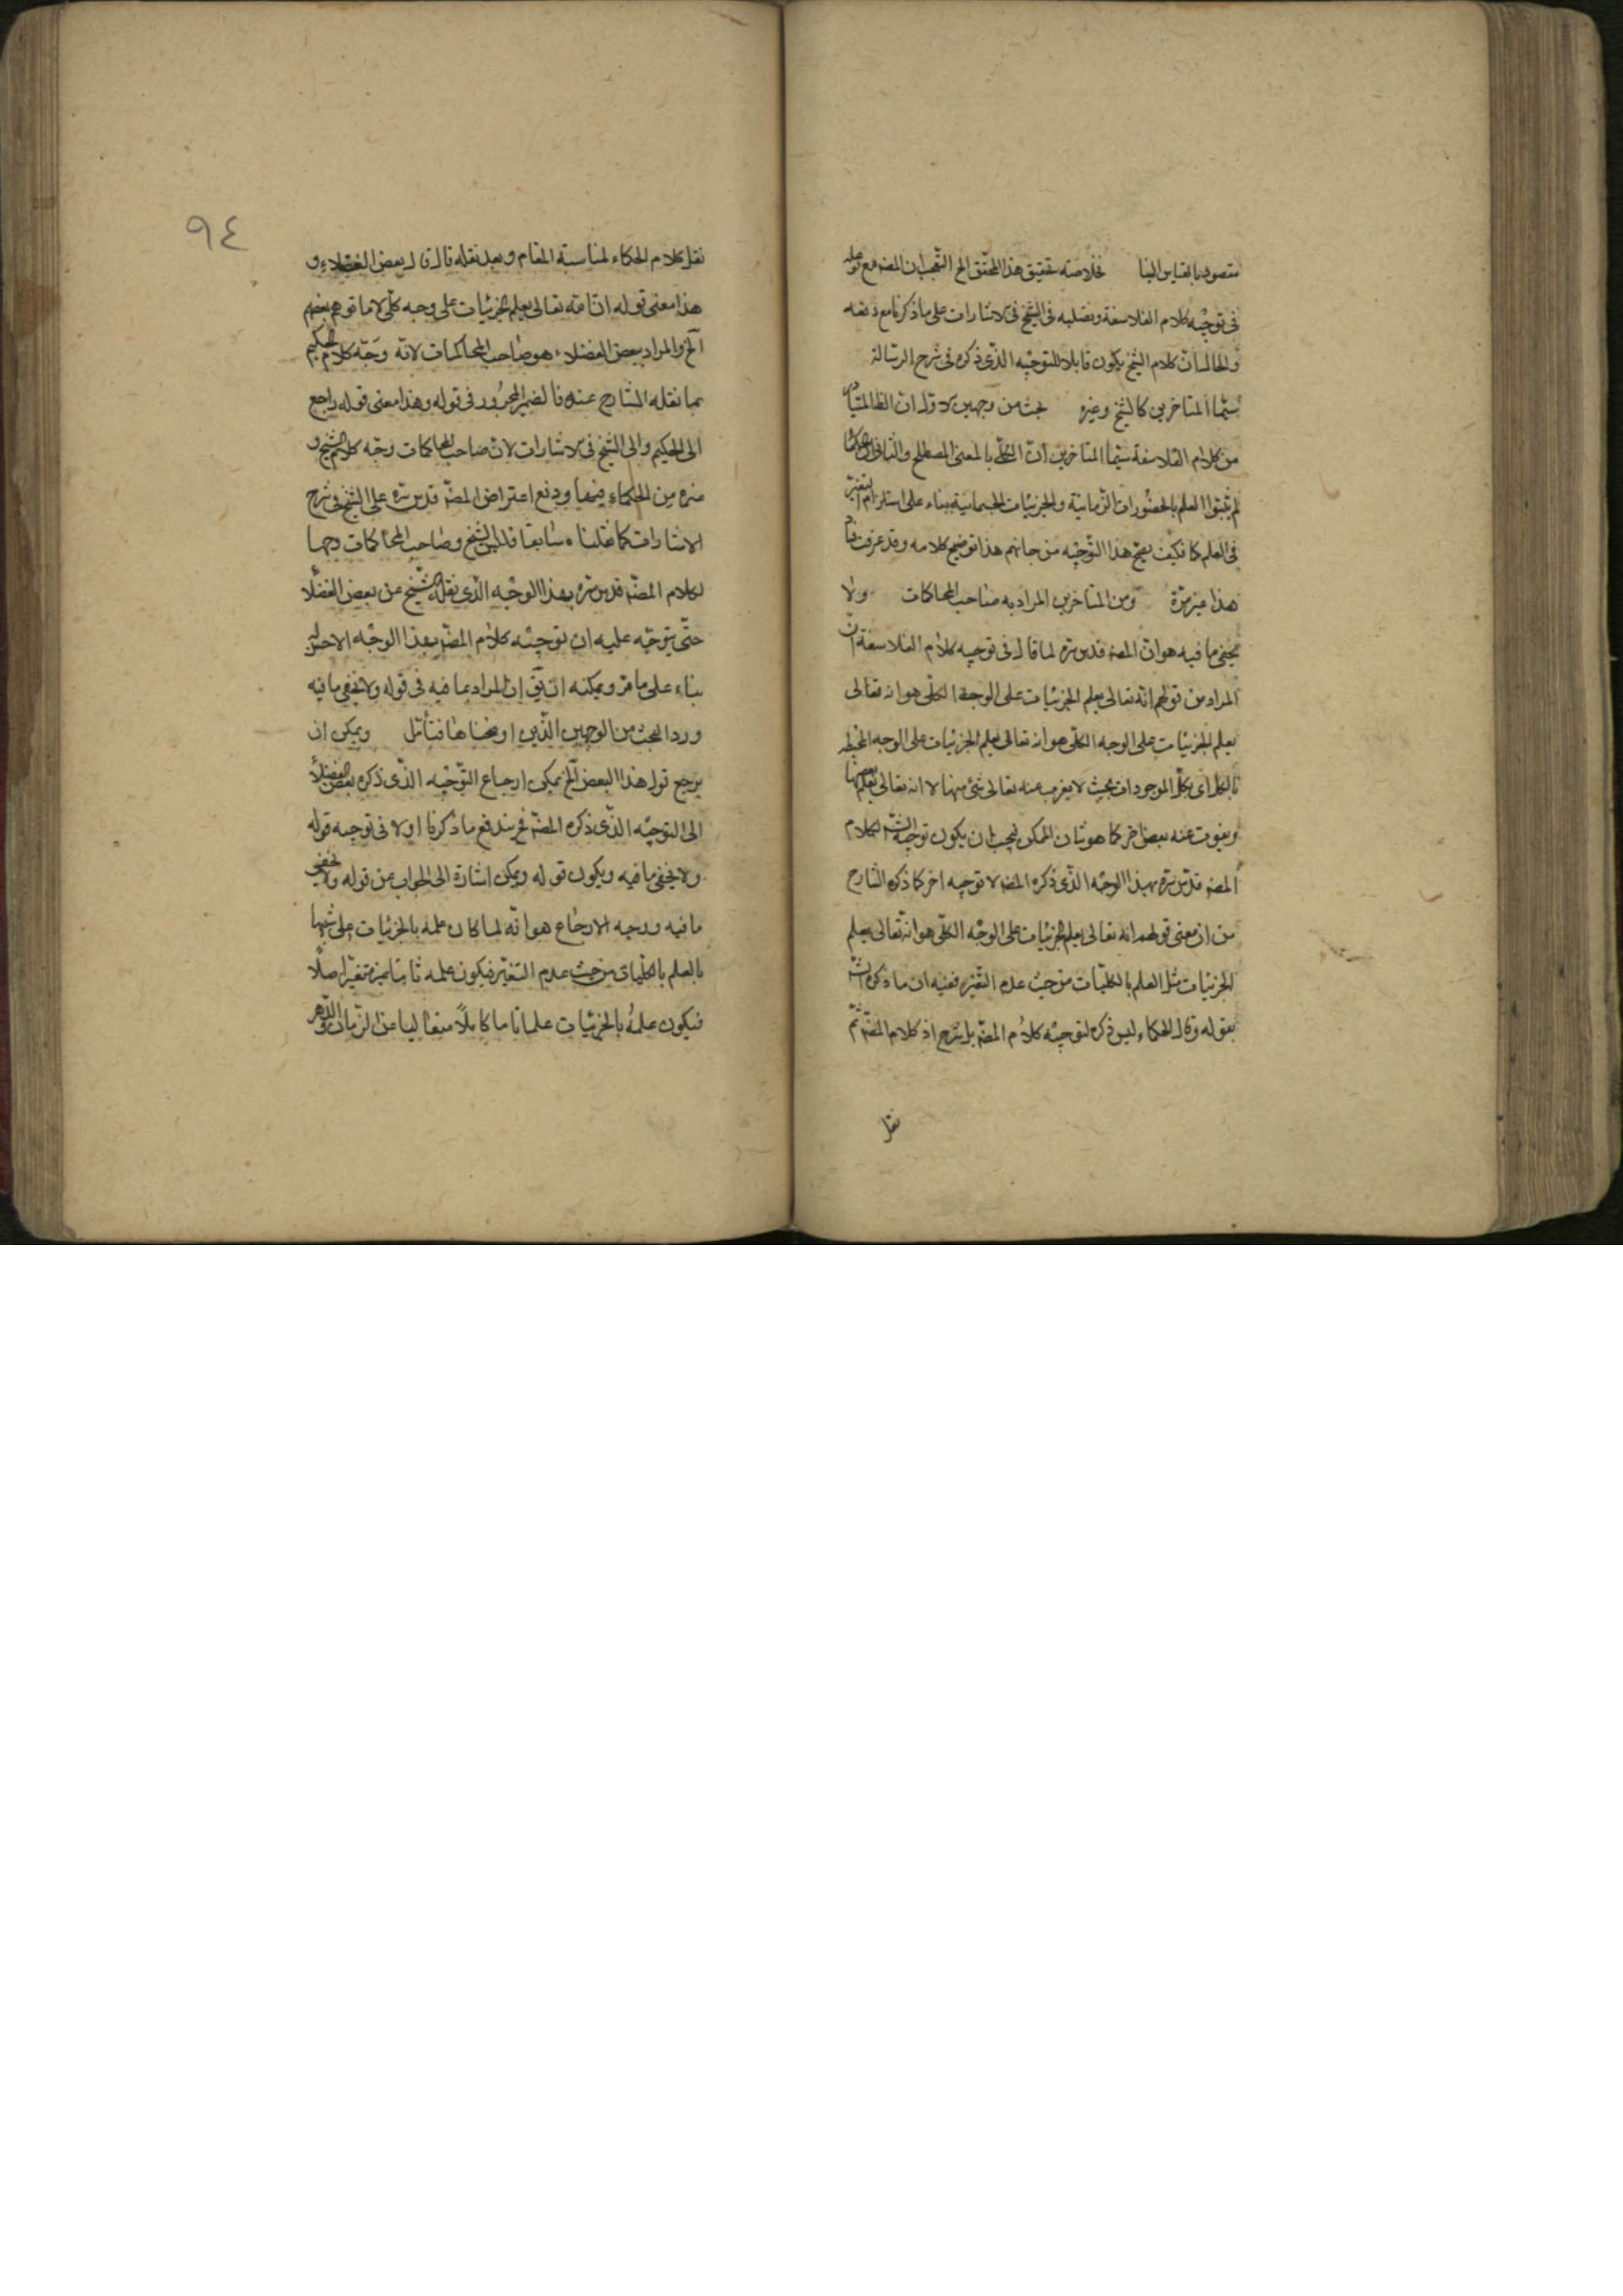 مقصودا بالقياس الينا خلاصته تحقيق هذا المحقق الخ التعجب ان المصه مع توغله
فى توجيه كلام الفلاسفة وتصلبه فى الشيخ فى الاشارات على ما ذكرنا مع دفعه
والحال ان كلام الشيخ يكون قابلا للتوجيه الذى ذكره فى شرح الرسالة
سيما المتاخرين كالشيخ وغيره بحث من وجهين الاول ان الظاهر المتبادر
من كلام الفلاسفة سيما المتاخرين ان الكلى بالمعنى المصطلح والثانى ان الحكماء
لم يثبتوا العلم بالحضورات الزمانية والجزئيات الجسمانية بناء على استلزام التغير
فى العلم فكيف يصح هذا التوجيه من جانبهم هذا توضيح كلامه وقد عرفت دفع
هذا غير مرة ومن المتاخرين المراد به صاحب المحاكات ولا
يخفى ما فيه هو ان المصه قدس سره لما قال فى توجيه كلام الفلاسفة ان
المراد من قولهم انه تعالى يعلم الجزئيات على الوجه الكلى هو انه تعالى
يعلم الجزئيات على الوجه الكلى هو انه تعالى يعلم الجزئيات على الوجه المحيط
بالكل اى بكل الموجودات بحيث لا يعزب عنه تعالى شئ منها لا انه تعالى يعلم بعضها
ويفوت عنه بعض اخر كما هو شان الممكن فيجب ان يكون توجيه الشه لكلام
المصه قدس سره بهذا الوجه الذى ذكره المصه لا توجيه اخر كما ذكره الشارح
من ان معنى قولهم انه تعالى يعلم الجزئيات على الوجه الكلى هو انه تعالى يعلم
الجزئيات مثل العلم بالكليات من حيث عدم التغير ففيه ان ما ذكره الشه
بقوله وقال الحكماء ليس ذكره لتوجيه كلام المصه بل شرح اذ كلام المصه تم
نقل
٩٤
نقل كلام الحكماء لمناسبة المقام وبعد نقله قال قال بعض الفضلاء و
هذا معنى قوله ان الله تعالى يعلم الجزئيات على وجه كلى لا ما توهم بعضهم
الخ والمراد ببعض الفضلاء هو صاحب المحاكمات لانه وجه كلام الحكيم
بما نقله الشارح عنه فالضمير المجرور فى قوله وهذا معنى قوله راجع
الى الحكيم والى الشيخ فى الاشارات لان صاحب المحاكمات وجه كلام الشيخ و
غيره من الحكماء فيها ودفع اعتراض المصه قدس سره على الشيخ فى شرح
الاشارات كما نقلناه سابقا فليس الشيخ وصاحب المحاكمات وجها
لكلام المصه قدس سره بهذا الوجه الذى نقله الشيخ عن بعض الفضلا
حتى يتوجه عليه ان توجيه كلام المصه بهذا الوجه الاخر ليس
بناء على ما مر ويمكنه ان يق ان المراد بما فيه فى قوله ولا يخفى ما فيه
ورد البحث من الوجهين الذين اوضحناها فتأمل ويمكن ان
يرجع قوله هذا البعض الخ يمكن ارجاع التوجيه الذى ذكره بعض الفضلا
الى التوجيه الذى ذكره المصه فح يندفع ما ذكرنا اولا فى توجيه قوله
ولا يخفى ما فيه ويكون قوله ويمكن اشارة الى الجواب عن قوله ولا يخفى
ما فيه ووجه الارجاع هو انه لما كان علمه بالجزئيات على شبهها
بالعلم بالكليات من حيث عدم التغير فيكون علمه ثابتا غير متغير اصلا
فيكون علمه بالجزئيات علما تاما كاملا متعاليا عن الزمان والدهر